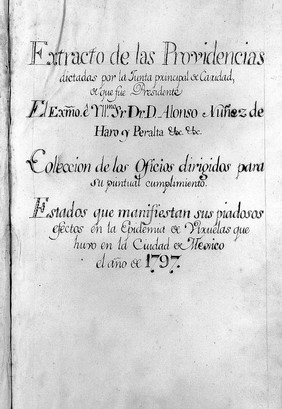 Extracto de las Providencias
dictadas por la Junta principal de Caridad,
de que fue Presidente
El Exmõ. é Yllmo. Sr. Dr. D. Alonso Nuñez de
Haro y Peralta &c. &c.
Colleccion de los Oficios dirigidos para
su puntual cumplimiento.
Estados que manifiestan sus piadosos
efectos en la Epidemia de Viruelas que
huvo en la Ciudad de Mexico
el año de 1797.